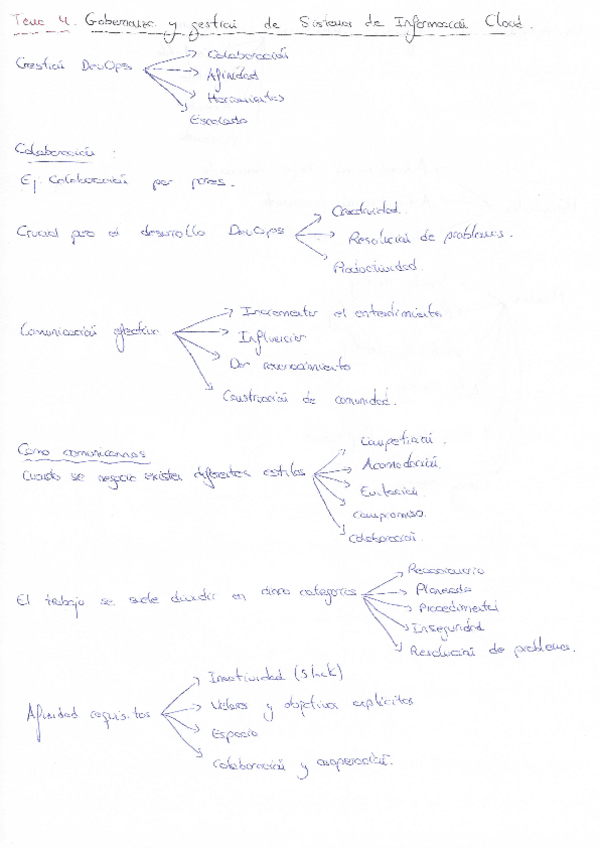 Tema 4. Gobernanza y gestión de Sistemas de Información Cloud.
Gestión DevOps
Colaboración
Afinidad
Herramientas
Escalado
Colaboración:
Ej. Colaboración por pares.
Crucial para el desarrollo DevOps
Creatividad.
Resolución de problemas.
Productividad.
Comunicación efectiva
Incrementar el entendimiento
Influenciar
Dar reconocimiento
Construcción de comunidad.
Como comunicarnos
Cuando se negocia existen diferentes estilos
Competición.
Acomodación.
Evitación.
Compromiso.
Colaboración.
El trabajo se suele dividir en cinco categorías
Planeada
Procedimental
Inseguridad
Resolución de problemas.
Afinidad requisitos
Inactividad (Slack)
Valores y objetivos explícitos
Espacio
Colaboración y cooperación.